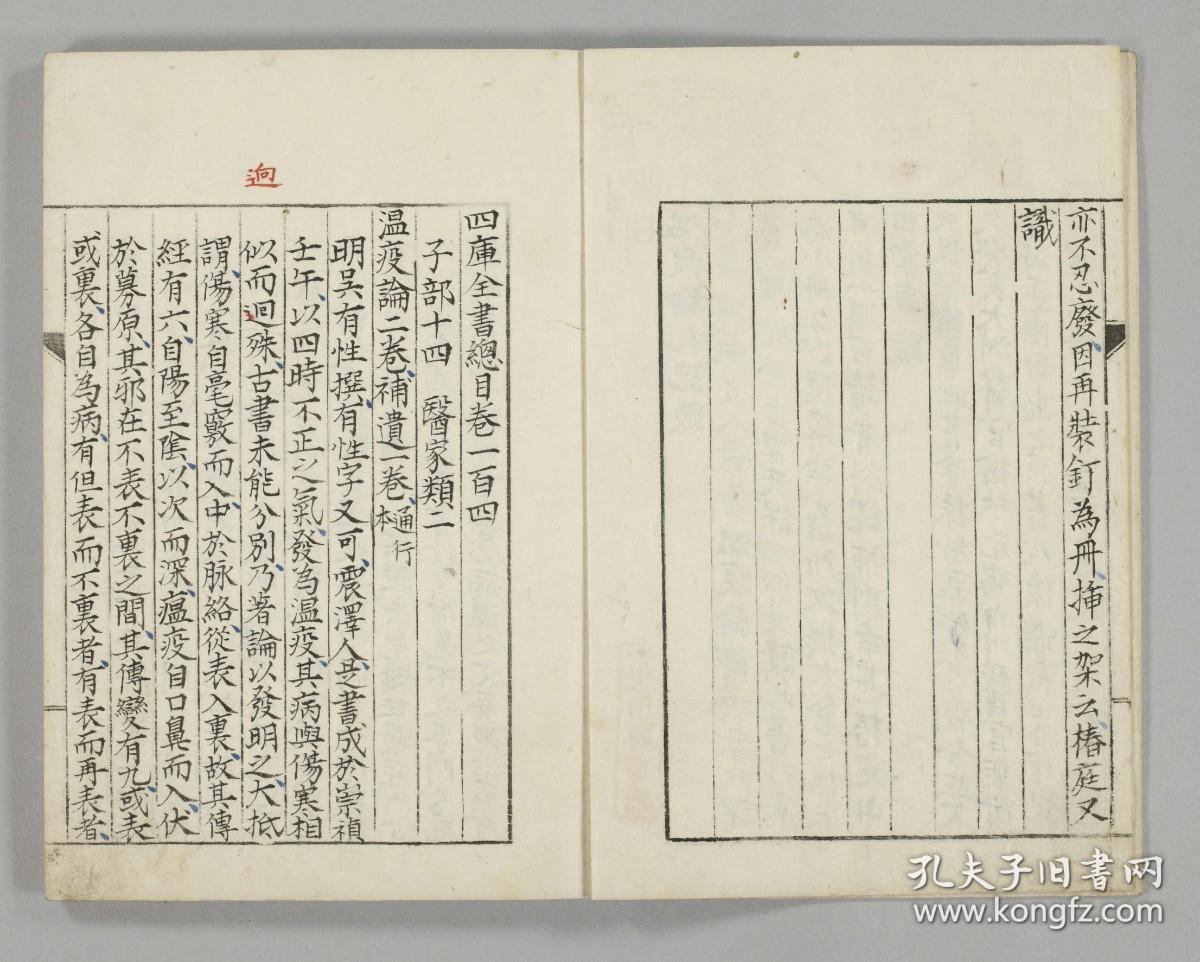 亦不忍廢、因再裝釘為冊、揷之架云、椿庭又
識
迥
四庫全書總目卷一百四
子部十四　醫家類二
温疫論二卷、補遺一卷、通行本
明吳有性撰、有性字又可、震澤人、是書成於崇禎
壬午、以四時不正之氣、發為温疫、其病與傷寒相
似而迴殊、古書未能分別、乃著論以發明之、大抵
謂、傷寒自毫竅而入、中於脉絡、從表入裏、故其傳
經有六、自陽至陰、以次而深、瘟疫自口鼻而入、伏
於募原、其邪在不表不裏之間、其傳變有九、或表
或裏、各自為病、有但表而不裏者、有表而再表者、
孔夫子旧书网
www.kongfz.com